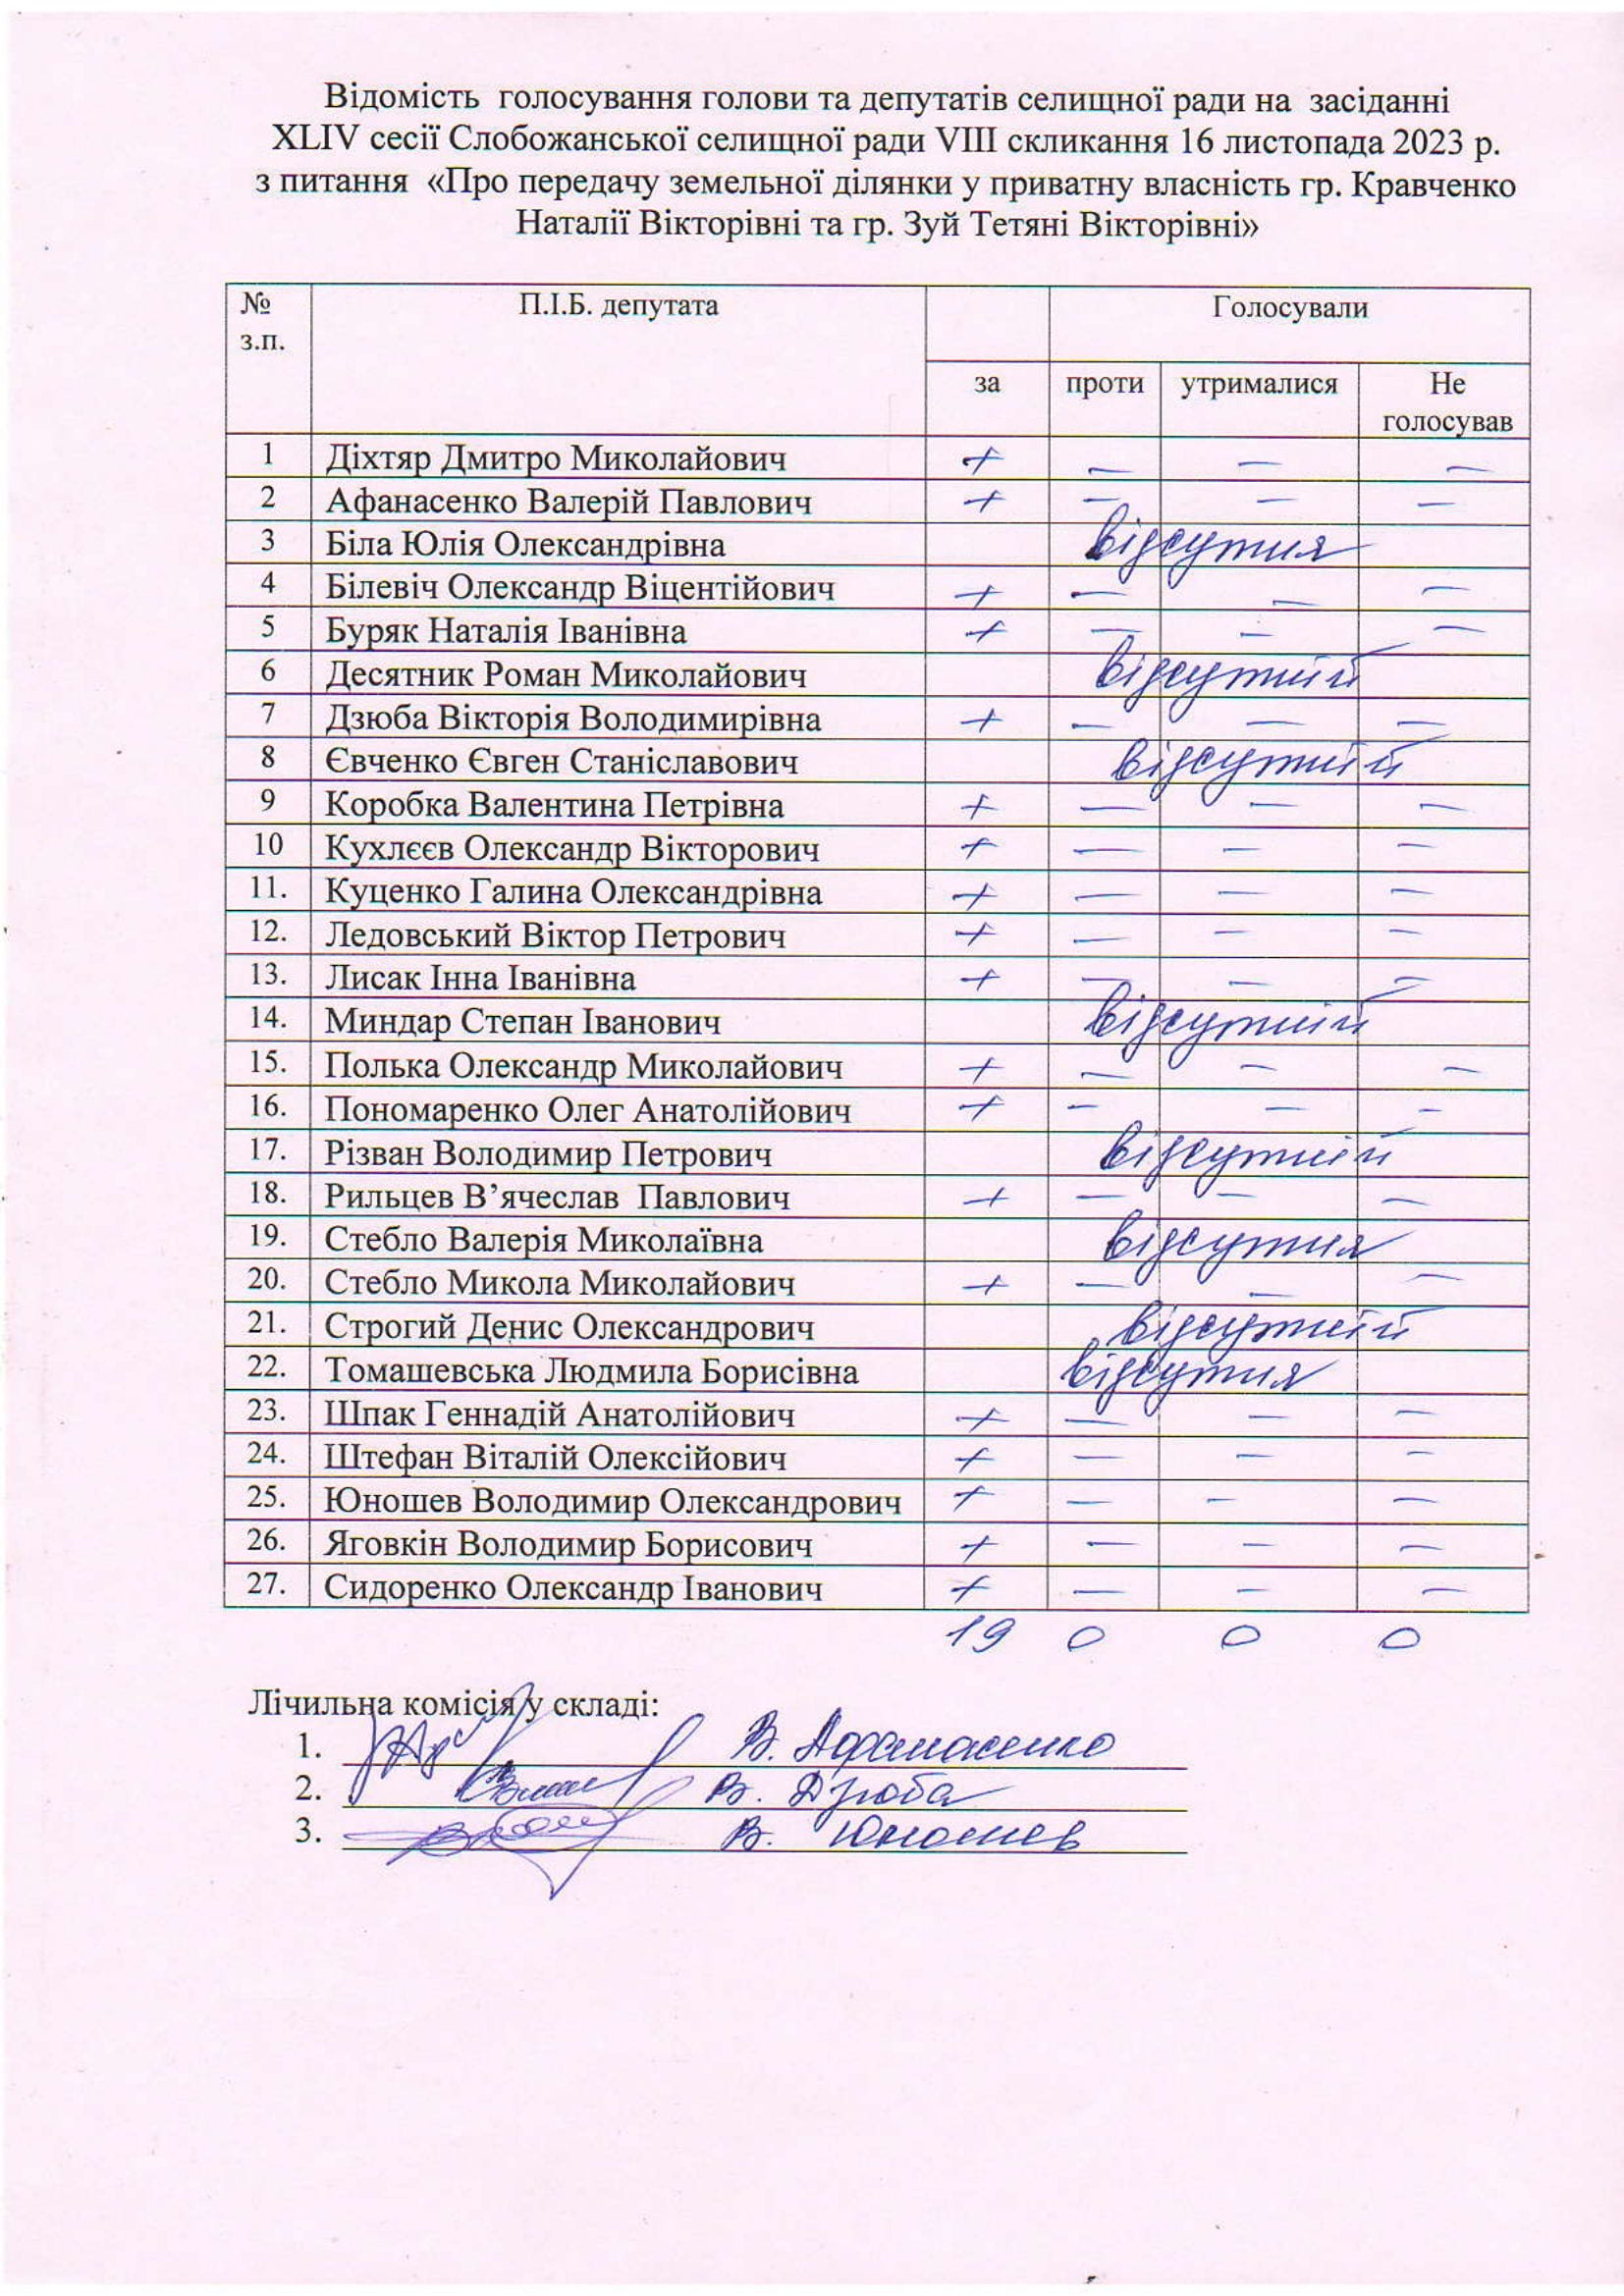 Відомість голосування голови та депутатів селищної ради на засіданні
XLIV сесії Слобожанської селищної ради VIII скликання 16 листопада 2023 р.
з питання «Про передачу земельної ділянки у приватну власність гр. Кравченко
Наталії Вікторівні та гр. Зуй Тетяні Вікторівні»
№ з.п. П.І.Б. депутата Голосували
за проти утрималися Не голосував
1 Діхтяр Дмитро Миколайович + — — —
2 Афанасенко Валерій Павлович + — — —
3 Біла Юлія Олександрівна відсутня
4 Білевіч Олександр Віцентійович + — — —
5 Буряк Наталія Іванівна + — — —
6 Десятник Роман Миколайович відсутній
7 Дзюба Вікторія Володимирівна + — — —
8 Євченко Євген Станіславович відсутній
9 Коробка Валентина Петрівна + — — —
10 Кухлєєв Олександр Вікторович + — — —
11. Куценко Галина Олександрівна + — — —
12. Ледовський Віктор Петрович + — — —
13. Лисак Інна Іванівна + — — —
14. Миндар Степан Іванович відсутній
15. Полька Олександр Миколайович + — — —
16. Пономаренко Олег Анатолійович + — — —
17. Різван Володимир Петрович відсутній
18. Рильцев В’ячеслав Павлович + — — —
19. Стебло Валерія Миколаївна відсутня
20. Стебло Микола Миколайович + — — —
21. Строгий Денис Олександрович відсутній
22. Томашевська Людмила Борисівна відсутня
23. Шпак Геннадій Анатолійович + — — —
24. Штефан Віталій Олексійович + — — —
25. Юношев Володимир Олександрович + — — —
26. Яговкін Володимир Борисович + — — —
27. Сидоренко Олександр Іванович + — — —
19 0 0 0
Лічильна комісія у складі:
1. В. Афанасенко
2. В. Дзюба
3. В. Юношев